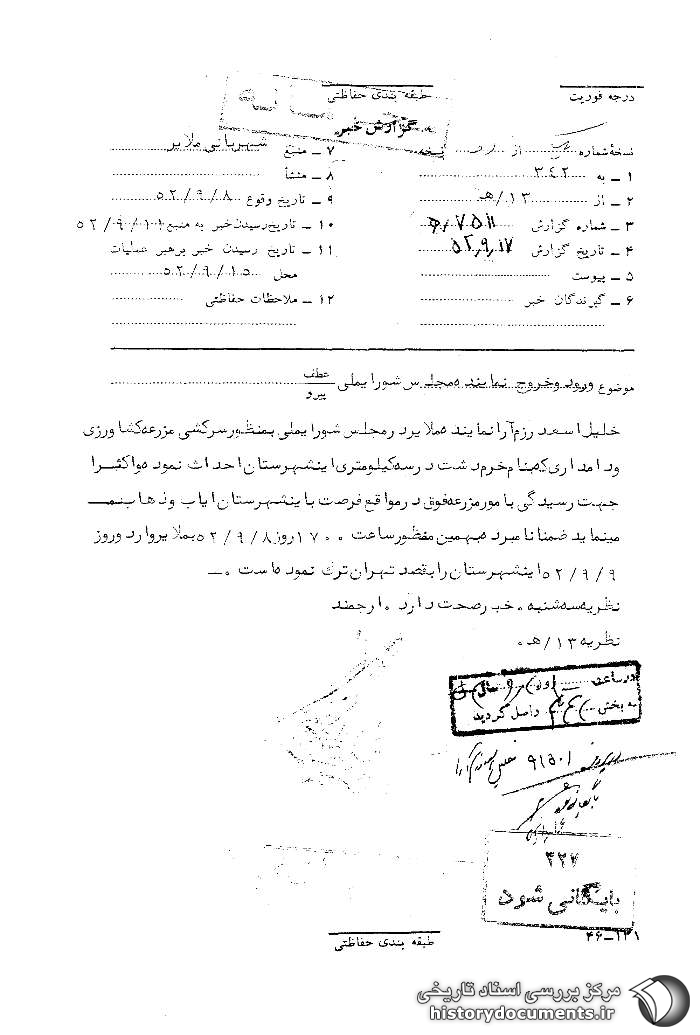 درجه فوریت
طبقه بندی حفاظتی
گزارش خبر
نسخهٔ شماره از نسخه
۱ ـ به ۳۴۲
۲ ـ از ۱۳/هـ
۳ ـ شماره گزارش ۷۵۱۱/هـ
۴ ـ تاریخ گزارش ۵۲٫۹٫۱۷
۵ ـ پیوست
۶ ـ گیرندگان خبر
۷ ـ منبع شهربانی ملایر
۸ ـ منشأ
۹ ـ تاریخ وقوع ۵۲/۹/۸
۱۰ ـ تاریخ رسیدن خبر به منبع ۵۲/۹/۱۰
۱۱ ـ تاریخ رسیدن خبر برهبر عملیات
محل ۵۲/۹/۱۵
۱۲ ـ ملاحظات حفاظتی
موضوع ورود وخروج نماینده مجلس شورایملی عطف پیرو
خلیل اسعد رزم آرا نماینده ملایر در مجلس شورایملی بمنظور سرکشی مزرعه کشاورزی
ودامداری که بنام خرم دشت در سه کیلومتری اینشهرستان احداث نموده واکثرا
جهت رسیدگی بامور مزرعه فوق در مواقع فرصت باینشهرستان ایاب وذهاب
مینماید ضمنا نامبرده بهمین منظور ساعت ۱۷۰۰ روز ۵۲/۹/۸ بملایر وارد وروز
۵۲/۹/۹ اینشهرستان را بقصد تهران ترک نموده است ۰ـ
نظریه سه شنبه ۰ خبر صحت دارد ۰ ارجمند
نظریه ۱۳/هـ ۰
در ساعت روز سال
به بخش واصل گردید
۹۱۵۰۱
۳۲۷
بایگانی شود
۴۶ـ۱۲۱
طبقه بندی حفاظتی
مرکز بررسی اسناد تاریخی
historydocuments.ir